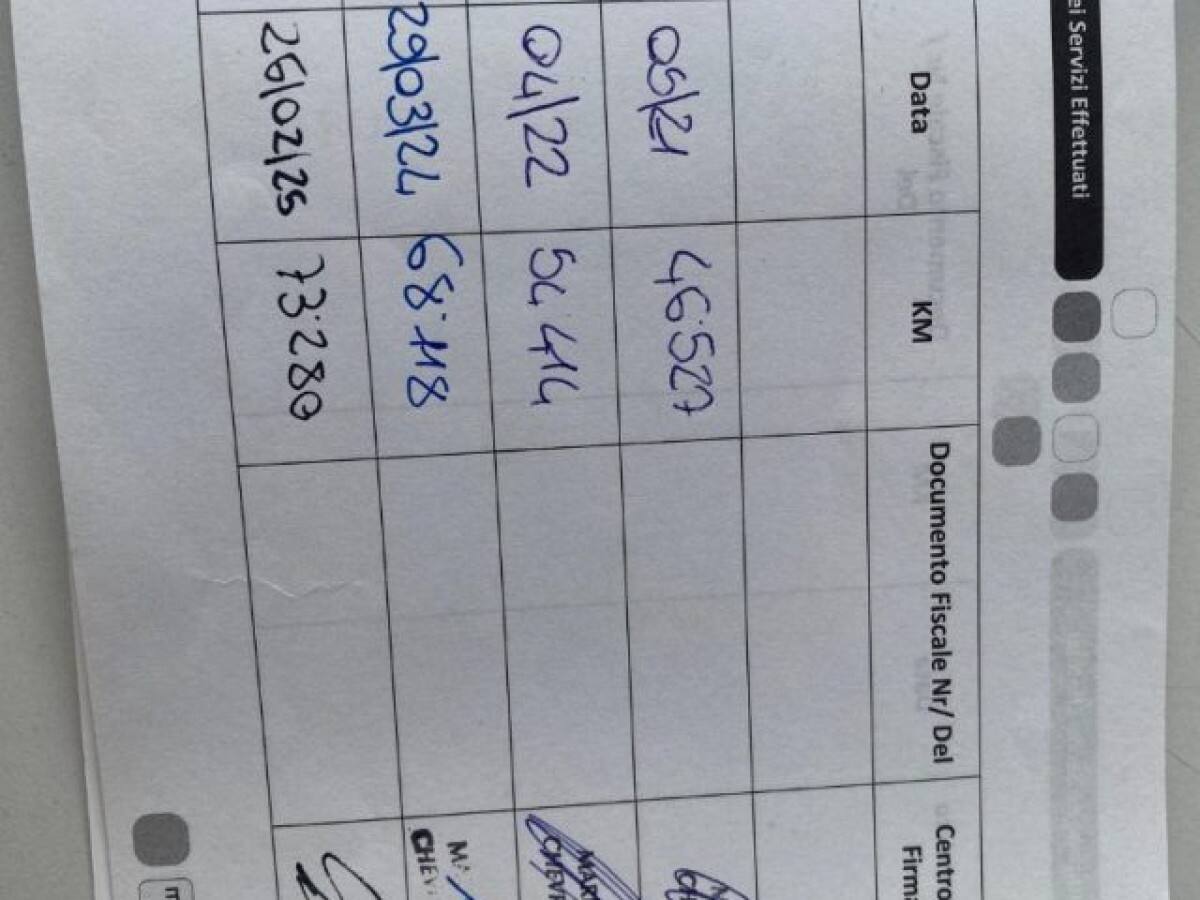 ei Servizi Effettuati
Data KM Documento Fiscale Nr/ Del Centro
Firma
05/21 46.527
04/22 54.414
29/03/24 68.118
26/02/25 73.280